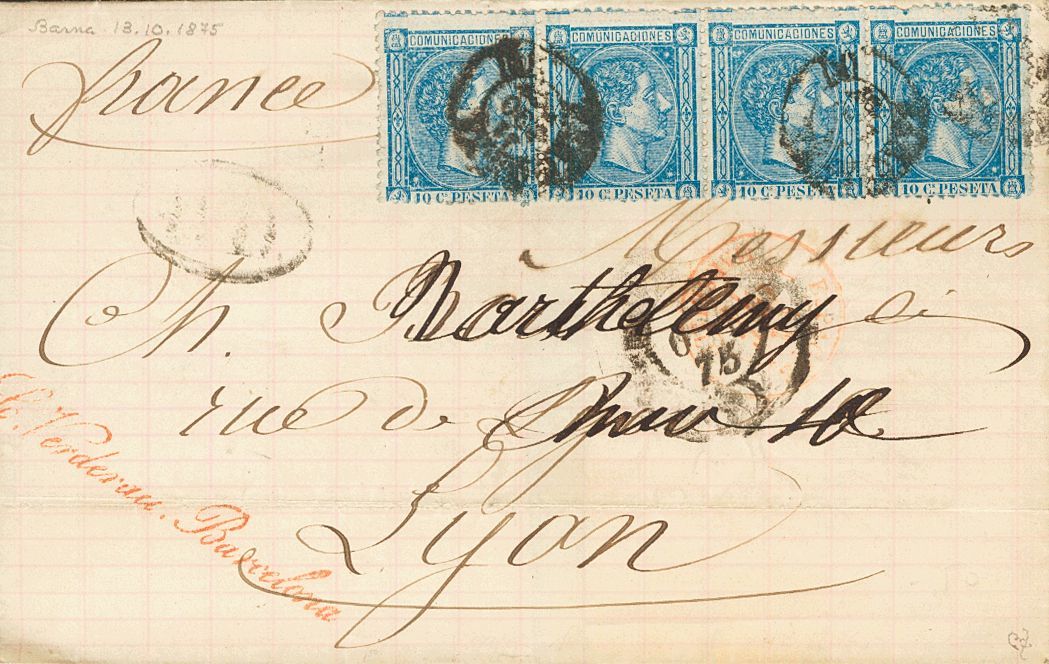 Barna 13.10.1875
COMUNICACIONES COMUNICACIONES COMUNICACIONES COMUNICACIONES
10 Cs PESETA 10 Cs PESETA 10 Cs PESETA 10 Cs PESETA
France
Messieurs
Ch. Barthelemy
75
rue de 10
Lyon
Verderau. Barcelona